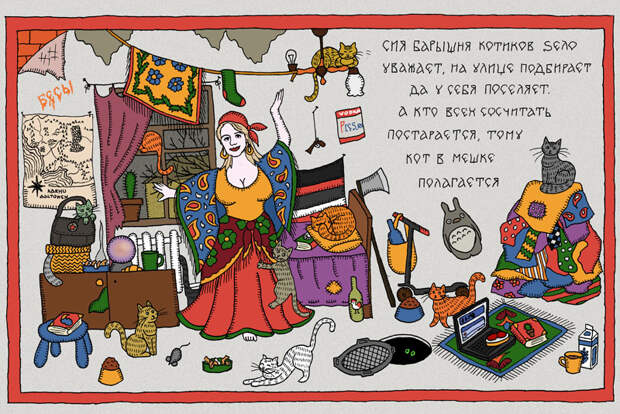 СИЯ БАРЫШНЯ КОТИКОВ ЅЕЛО
УВАЖАЕТ, НА УЛИЦЕ ПОДБИРАЕТ
ДА У СЕБЯ ПОСЕЛЯЕТ.
А КТО ВСЕХ СОСЧИТАТЬ
ПОСТАРАЕТСЯ, ТОМУ
КОТ В МЕШКЕ
ПОЛАГАЕТСЯ
БЕСЫ